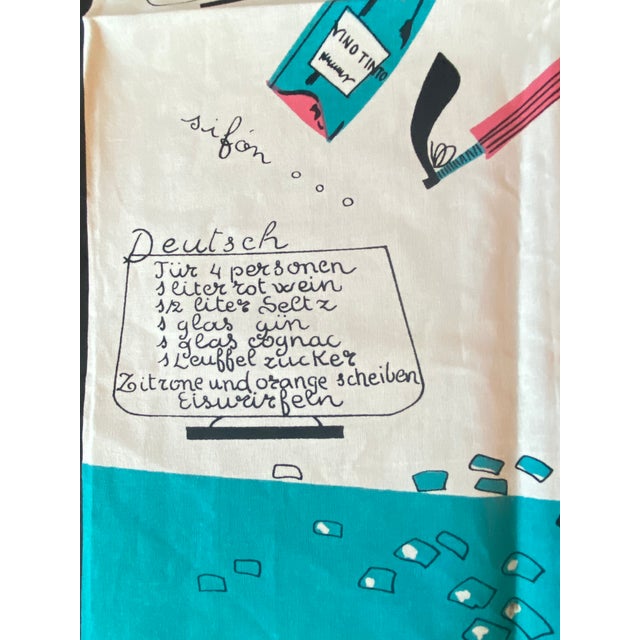 VINO TINTO
sifón
Deutsch
Für 4 personen
1 liter rot wein
1/2 liter Seltz
1 glas gin
1 glas cognac
1 Leuffel zucker
Zitrone und orange scheiben
Eiswirfeln